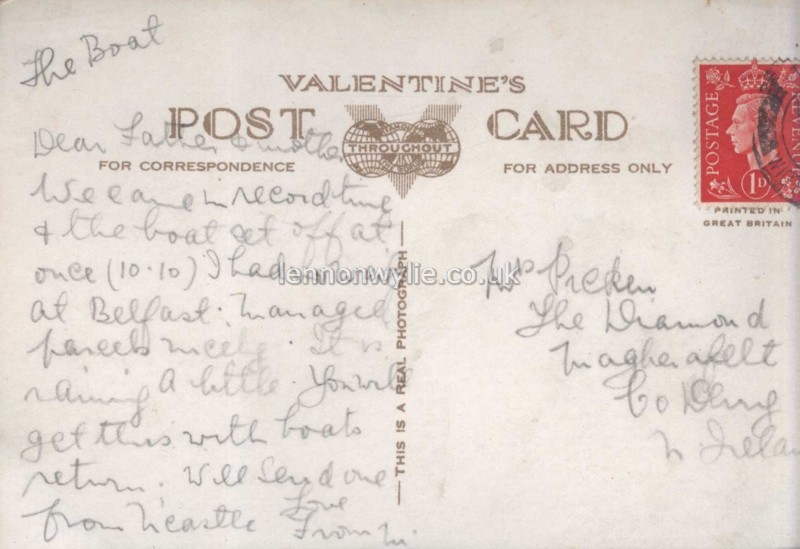 The Boat
VALENTINE'S
POST CARD
THROUGHOUT
FOR CORRESPONDENCE
FOR ADDRESS ONLY
POSTAGE
REVENUE
1D
PRINTED IN
GREAT BRITAIN
Dear Father & mother
We came in record time
& the boat set off at
once (10.10) I had
at Belfast. Managed
parcels nicely. It is
raining a little. You will
get this with boats
return. Will send one
from N'castle Love
From
THIS IS A REAL PHOTOGRAPH
lennonwylie.co.uk
Mrs Picken
The Diamond
Magherafelt
Co Derry
N Irelan